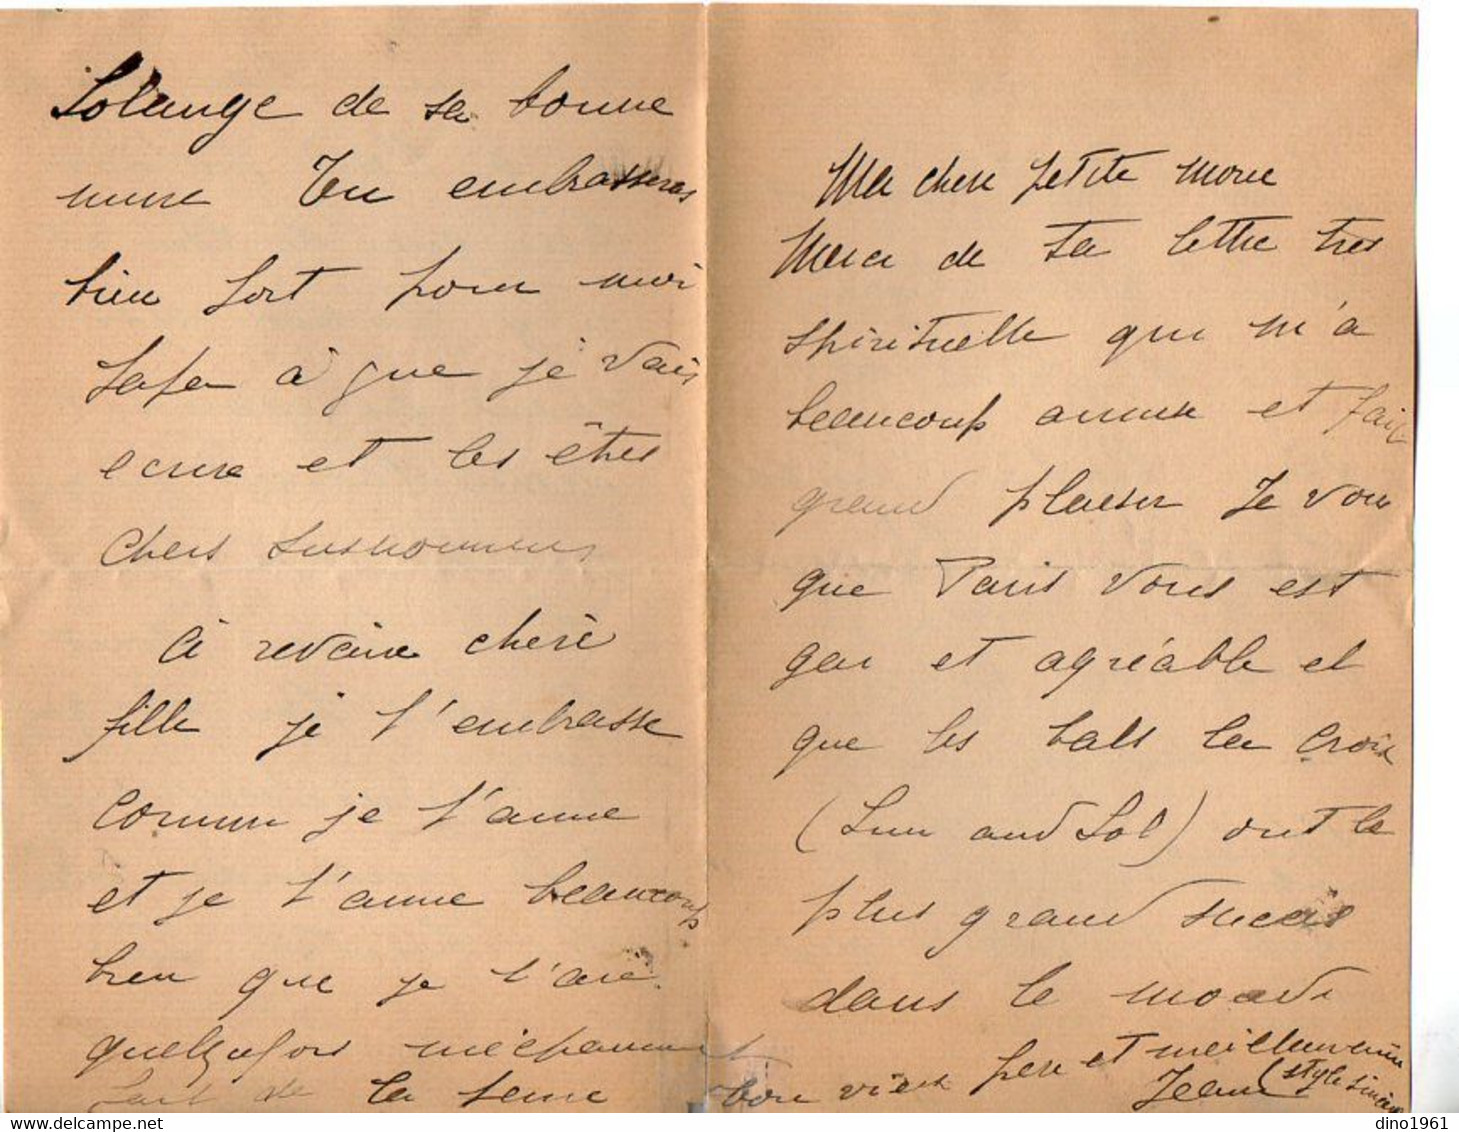 Ma chere petite mere
Merci de ta lettre tres
spirituelle qui m'a
beaucoup amuse et fait
grand plaisir Je vois
que Paris vous est
gai et agréable et
que les bals la Croix
(Lun and Sol) ont le
plus grand succès
dans le monde
Solange de sa bonne
mere Tu embrasseras
bien fort pour moi
papa à que je vais
ecrire et les êtres
chers susnommes
à revoire cherè
fille je t'embrasse
comme je t'aime
et je t'aime beaucoup
bien que je t'aie
quelquefois méchamment
fait de la peine
ton vieux pere et meilleur ami
Jean (style sincère
dino1961